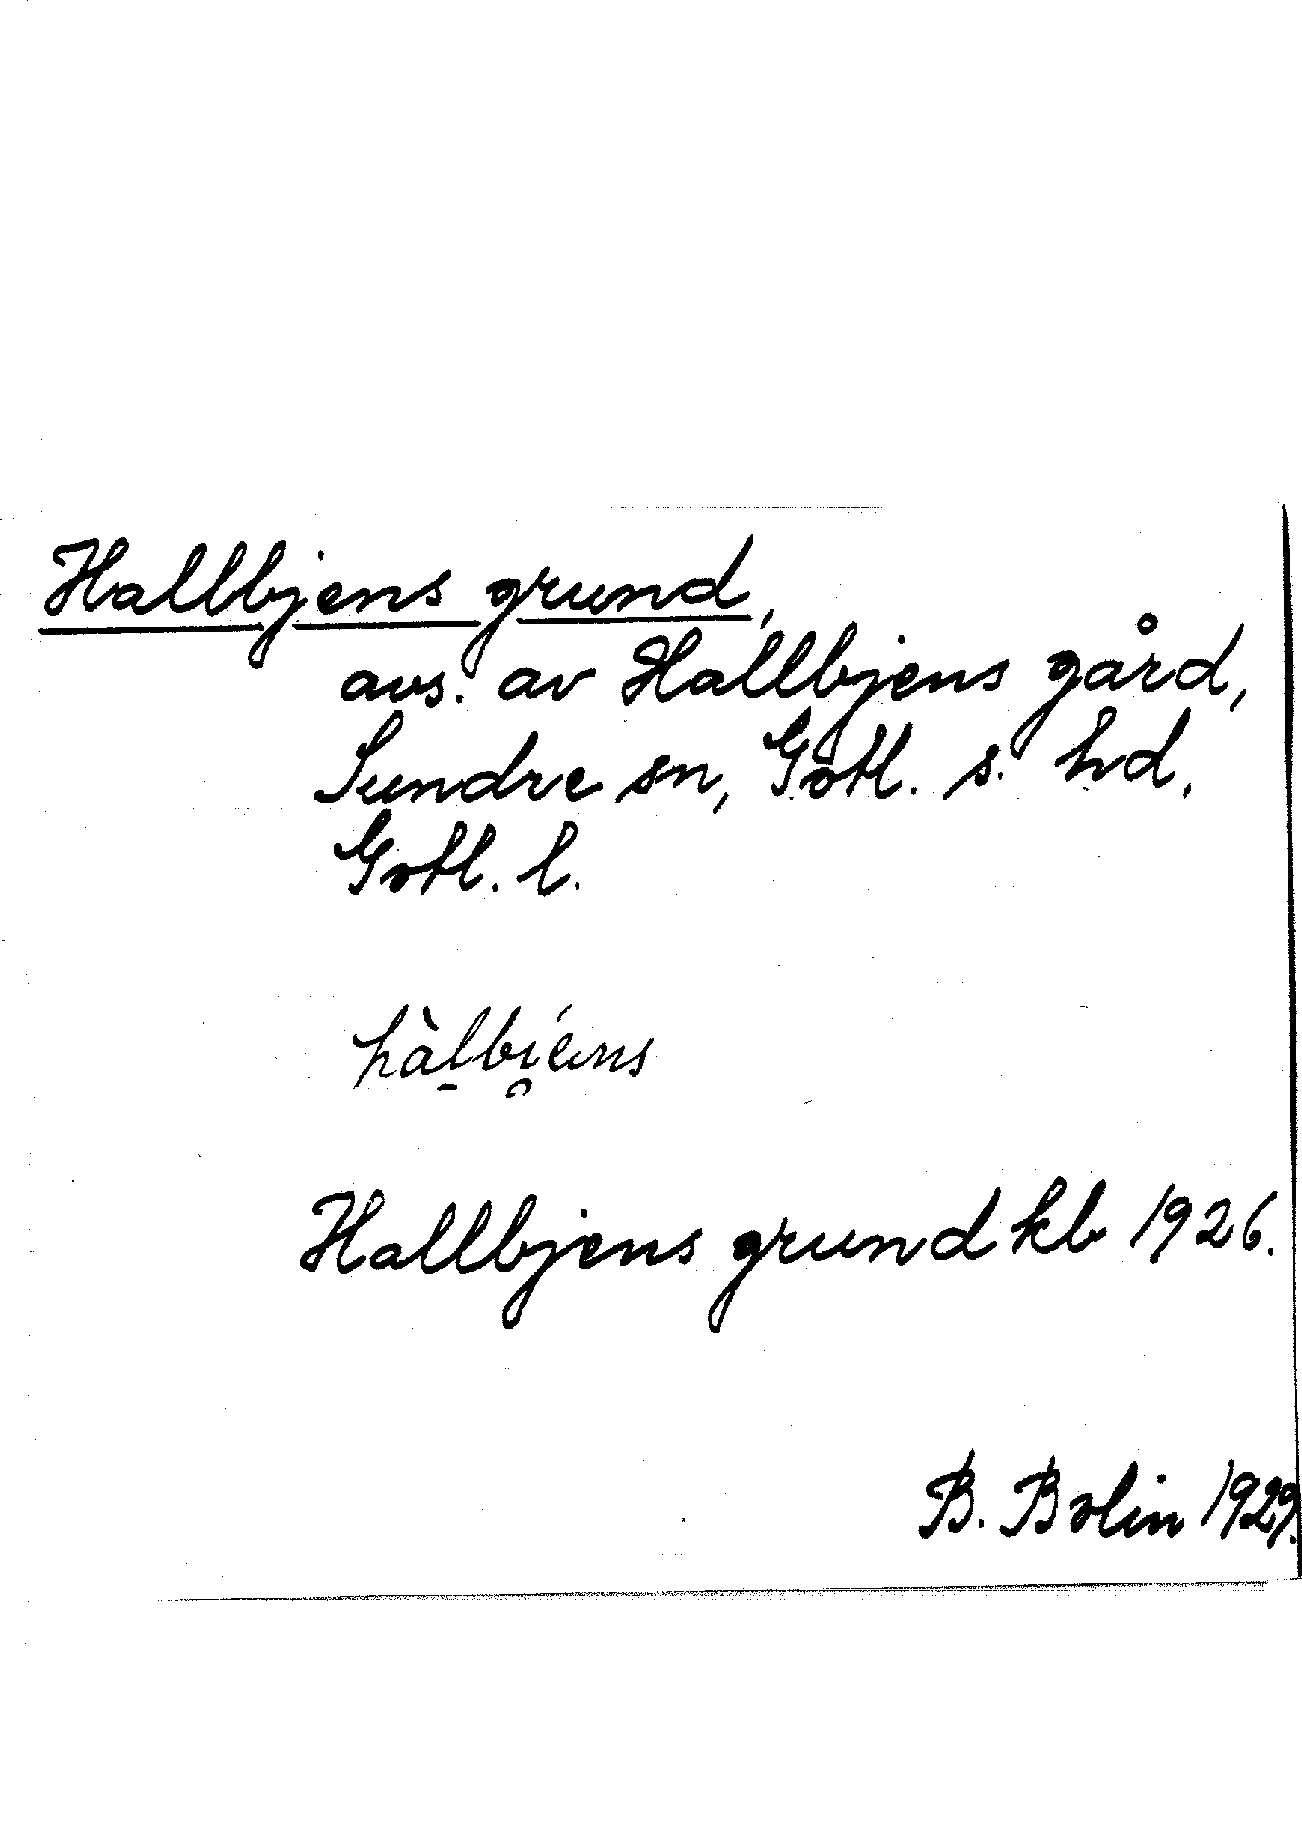 Hallbjens grund,
avs. av Hallbjens gård,
Sundre sn, Gotl. s. hd,
Gotl. l.
hàl̠bi̯éns
Hallbjens grund kb 1926.
B. Bolin 1929.